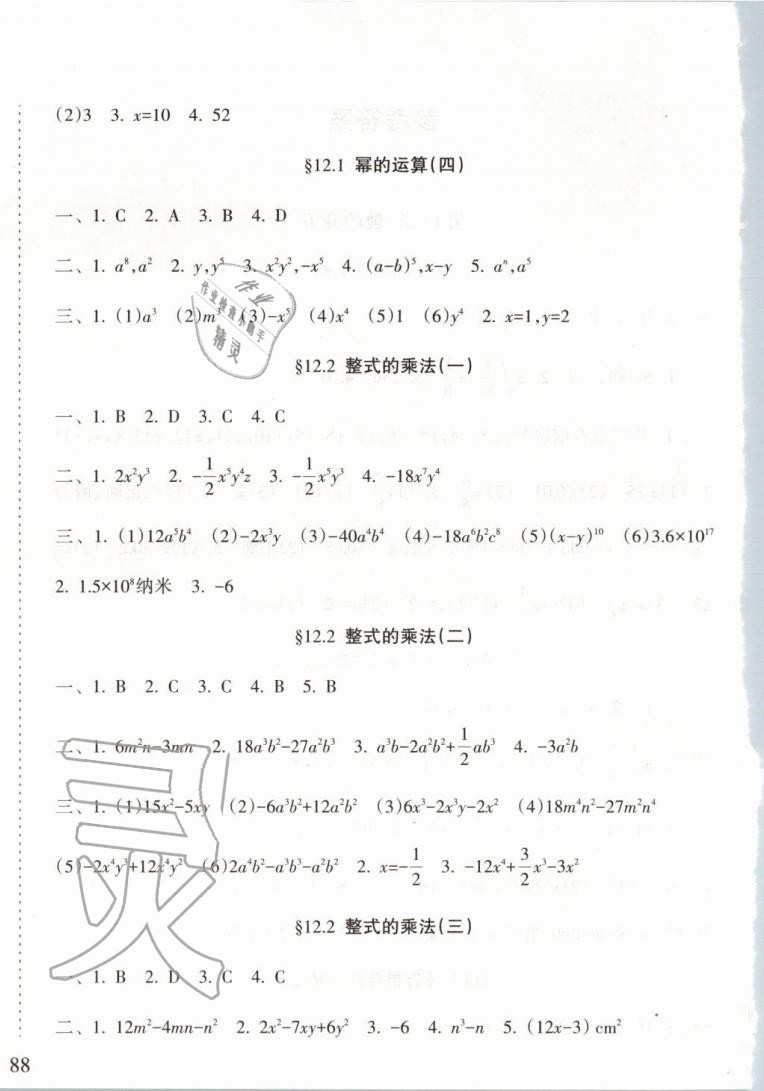 (2)3 3. x=10 4. 52
§12.1 幂的运算(四)
一、1. C 2. A 3. B 4. D
二、1. a⁸,a² 2. y,y⁵ 3. x²y²,-x⁵ 4. (a-b)⁵,x-y 5. aⁿ,a⁵
三、1. (1)a³ (2)m³ (3)-x⁵ (4)x⁴ (5)1 (6)y⁴ 2. x=1,y=2
作业
作业检查小助手
精灵
§12.2 整式的乘法(一)
一、1. B 2. D 3. C 4. C
二、1. 2x²y³ 2. -1/2x⁵y⁴z 3. -1/2x⁵y³ 4. -18x⁷y⁴
三、1. (1)12a⁵b⁴ (2)-2x³y (3)-40a⁴b⁴ (4)-18a⁶b²c⁸ (5)(x-y)¹⁰ (6)3.6×10¹⁷
2. 1.5×10⁸纳米 3. -6
§12.2 整式的乘法(二)
一、1. B 2. C 3. C 4. B 5. B
二、1. 6m²n-3mn 2. 18a³b²-27a²b³ 3. a³b-2a²b²+1/2ab³ 4. -3a²b
三、1. (1)15x²-5xy (2)-6a³b²+12a²b² (3)6x³-2x³y-2x² (4)18m⁴n²-27m²n⁴
(5)-2x⁴y³+12x⁴y² (6)2a⁴b²-a³b³-a²b² 2. x=-1/2 3. -12x⁴+3/2x³-3x²
灵
§12.2 整式的乘法(三)
一、1. B 2. D 3. C 4. C
二、1. 12m²-4mn-n² 2. 2x²-7xy+6y² 3. -6 4. n³-n 5. (12x-3) cm²
88